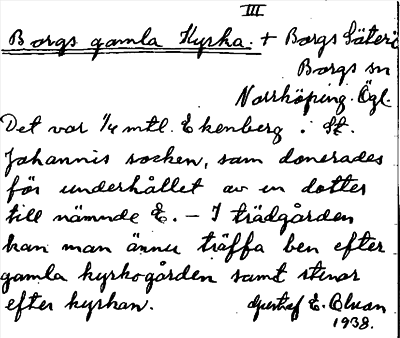 III
Borgs gamla Kyrka. + Borgs Säteri
Borgs sn
Norrköping. Ögl.
Det var 1/4 mtl. Ekenberg i St.
Johannis socken, som donerades
för underhållet av en dotter
till nämnde E. – I trädgården
kan man ännu träffa ben efter
gamla kyrkogården samt stenar
efter kyrkan.
Gustaf E. Bluan
1938.